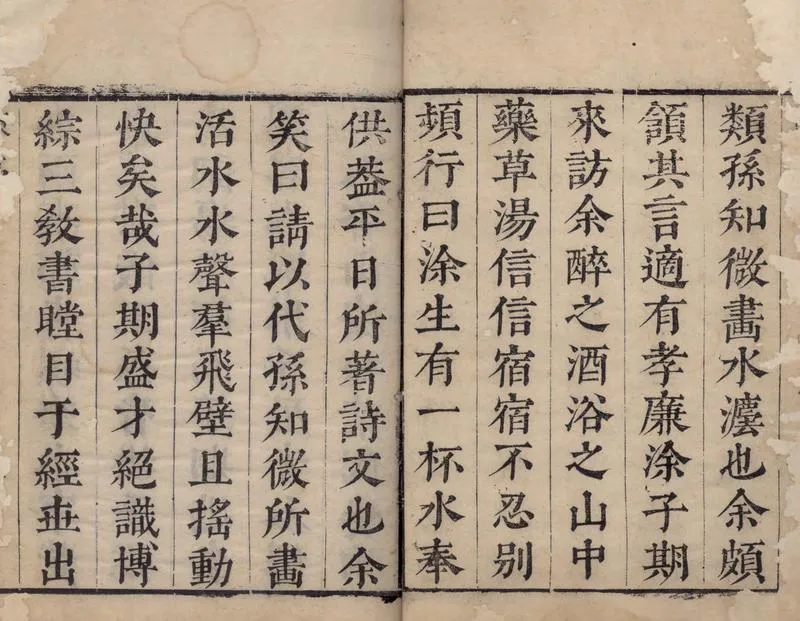 類孫知微畫水灋也余頗
頷其言適有孝廉涂子期
來訪余醉之酒浴之山中
藥草湯信信宿宿不忍别
頻行曰涂生有一杯水奉
供葢平日所著詩文也余
笑曰請以代孫知微所畫
活水水聲羣飛壁且搖動
快矣哉子期盛才絕識博
綜三敎書瞠目于經世出